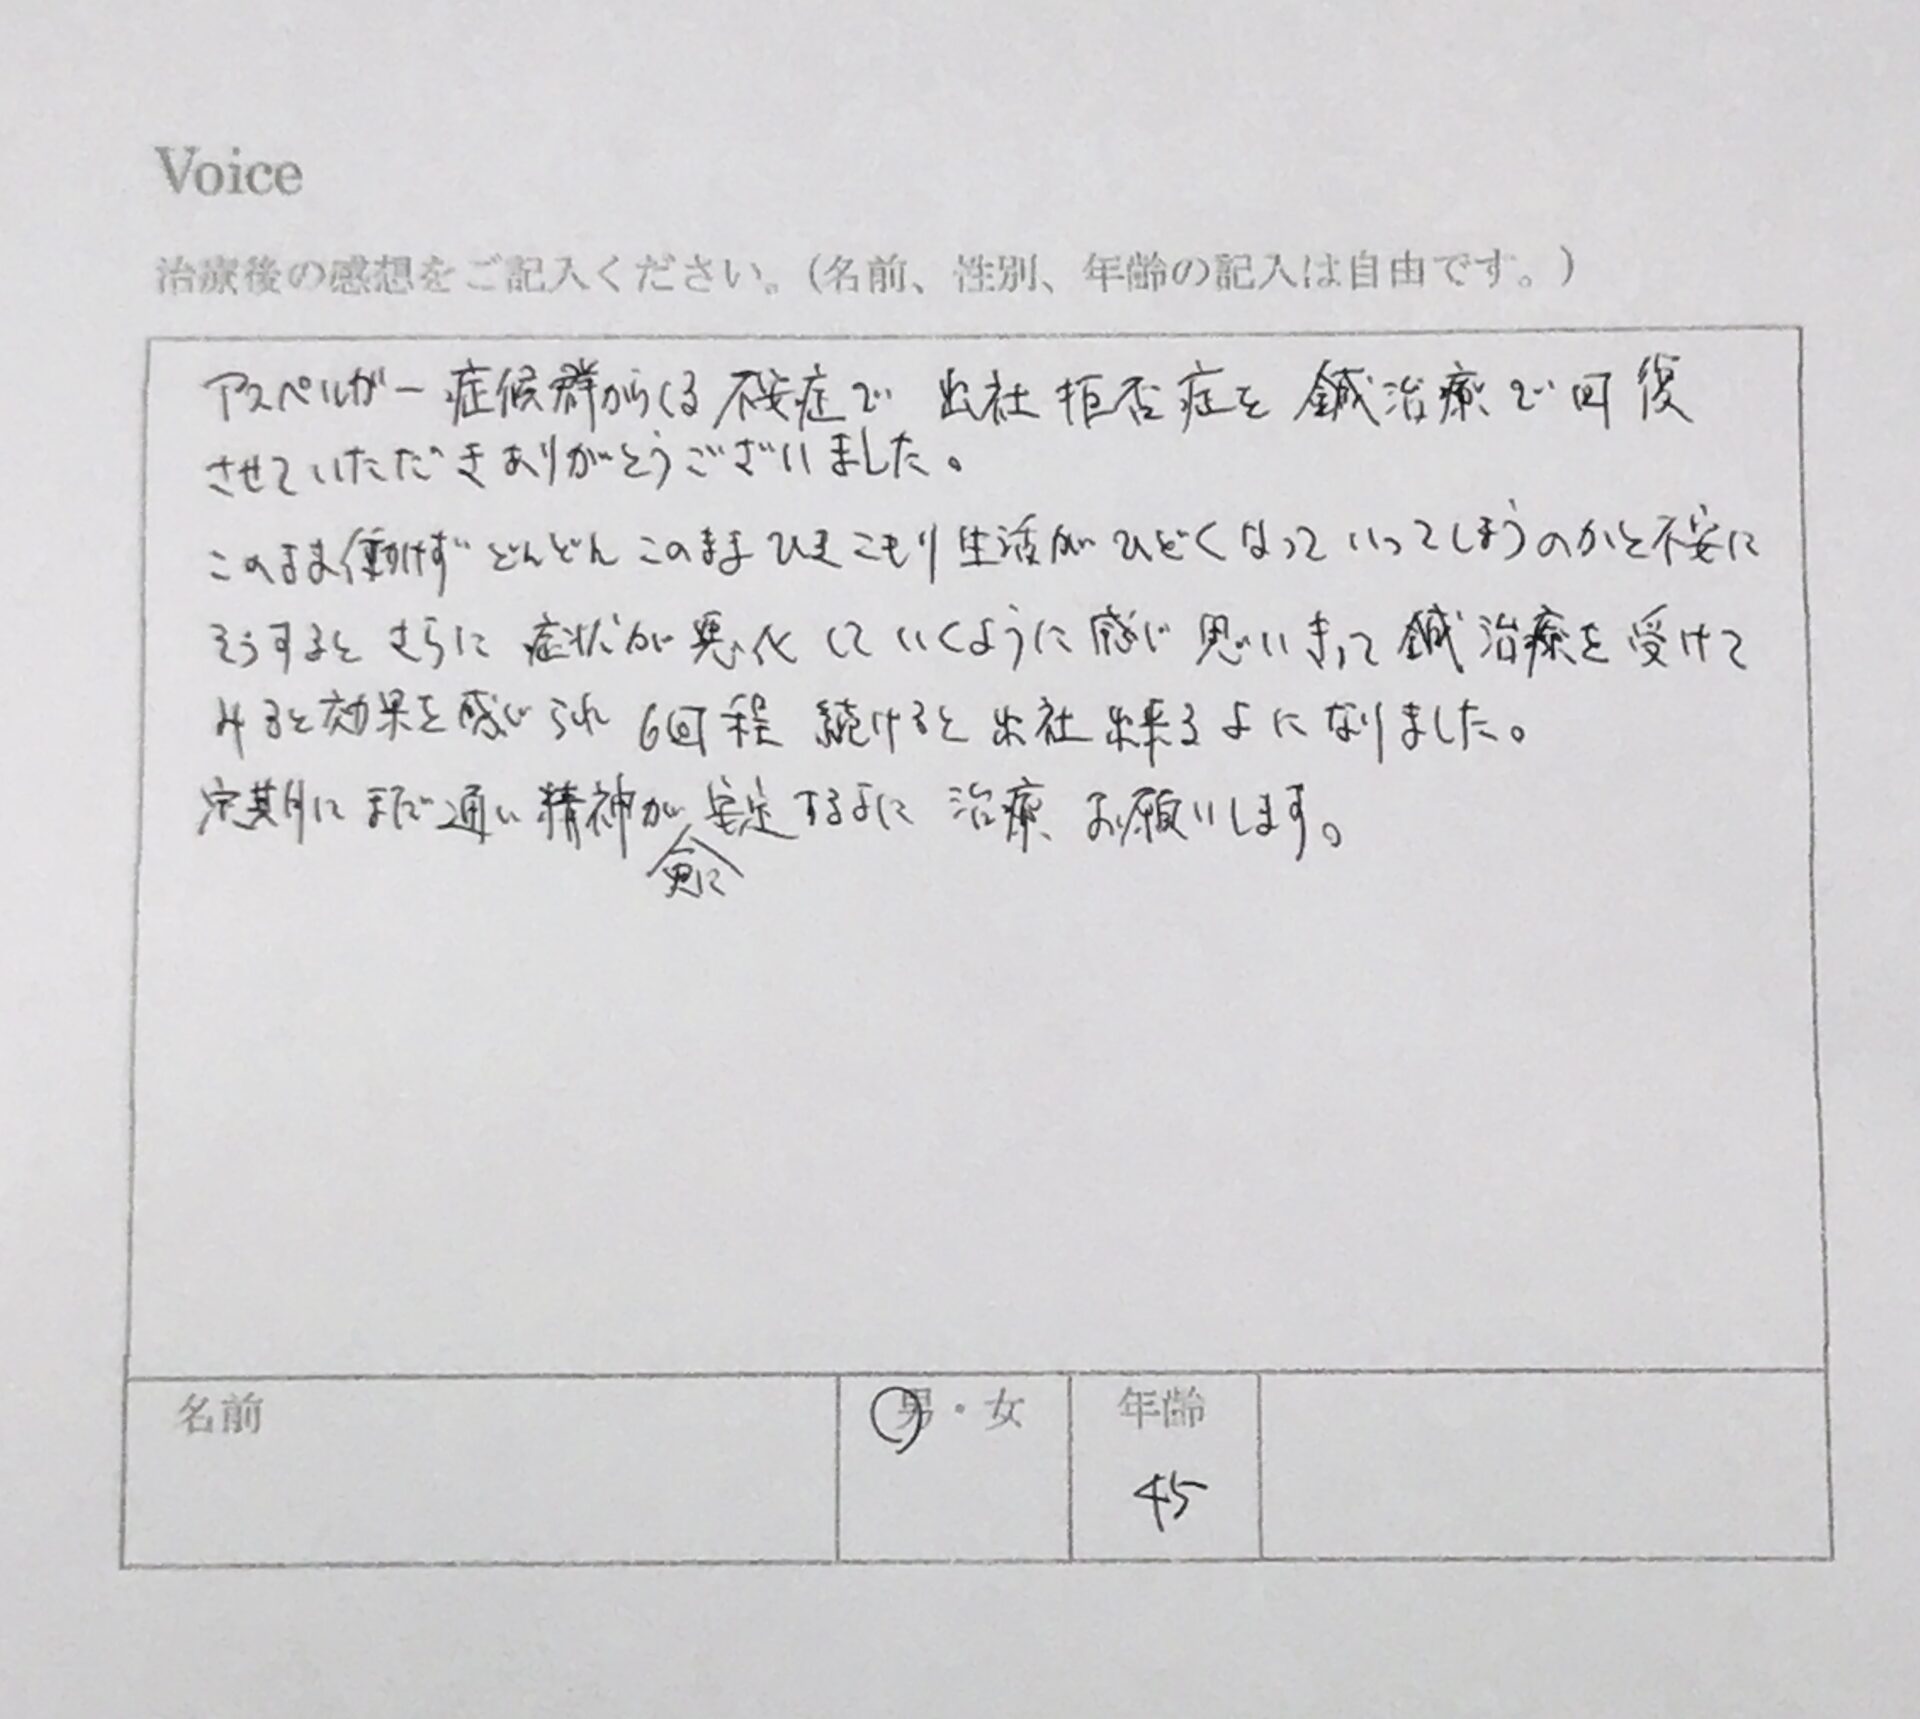 Voice
治療後の感想をご記入ください。(名前、性別、年齢の記入は自由です。)
アスペルガー症候群からくる不安症で 出社拒否症を 鍼治療で回復
させていただきありがとうございました。
このまま働けずどんどんこのままひきこもり生活がひどくなっていってしまうのかと不安に
そうするとさらに症状が悪化していくように感じ思いきって鍼治療を受けて
みると効果を感じられ 6回程 続けると出社出来るよになりました。
定期にまだ通い精神が安定するよに 治療、お願いします。
更に
名前
男・女
年齢
45